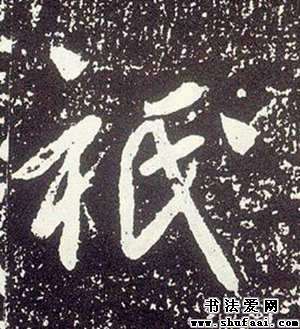 祗
书法爱网
www.shufaai.com